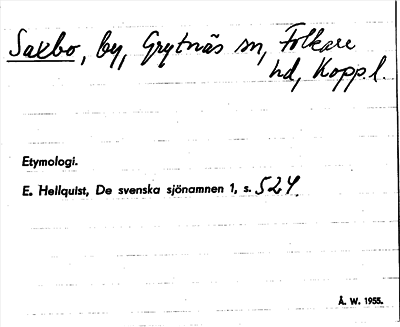 Saxbo, by, Grytnäs sn, Folkare
hd, Kopp.l.
Etymologi.
E. Hellquist, De svenska sjönamnen 1, s. 524.
Å. W. 1955.